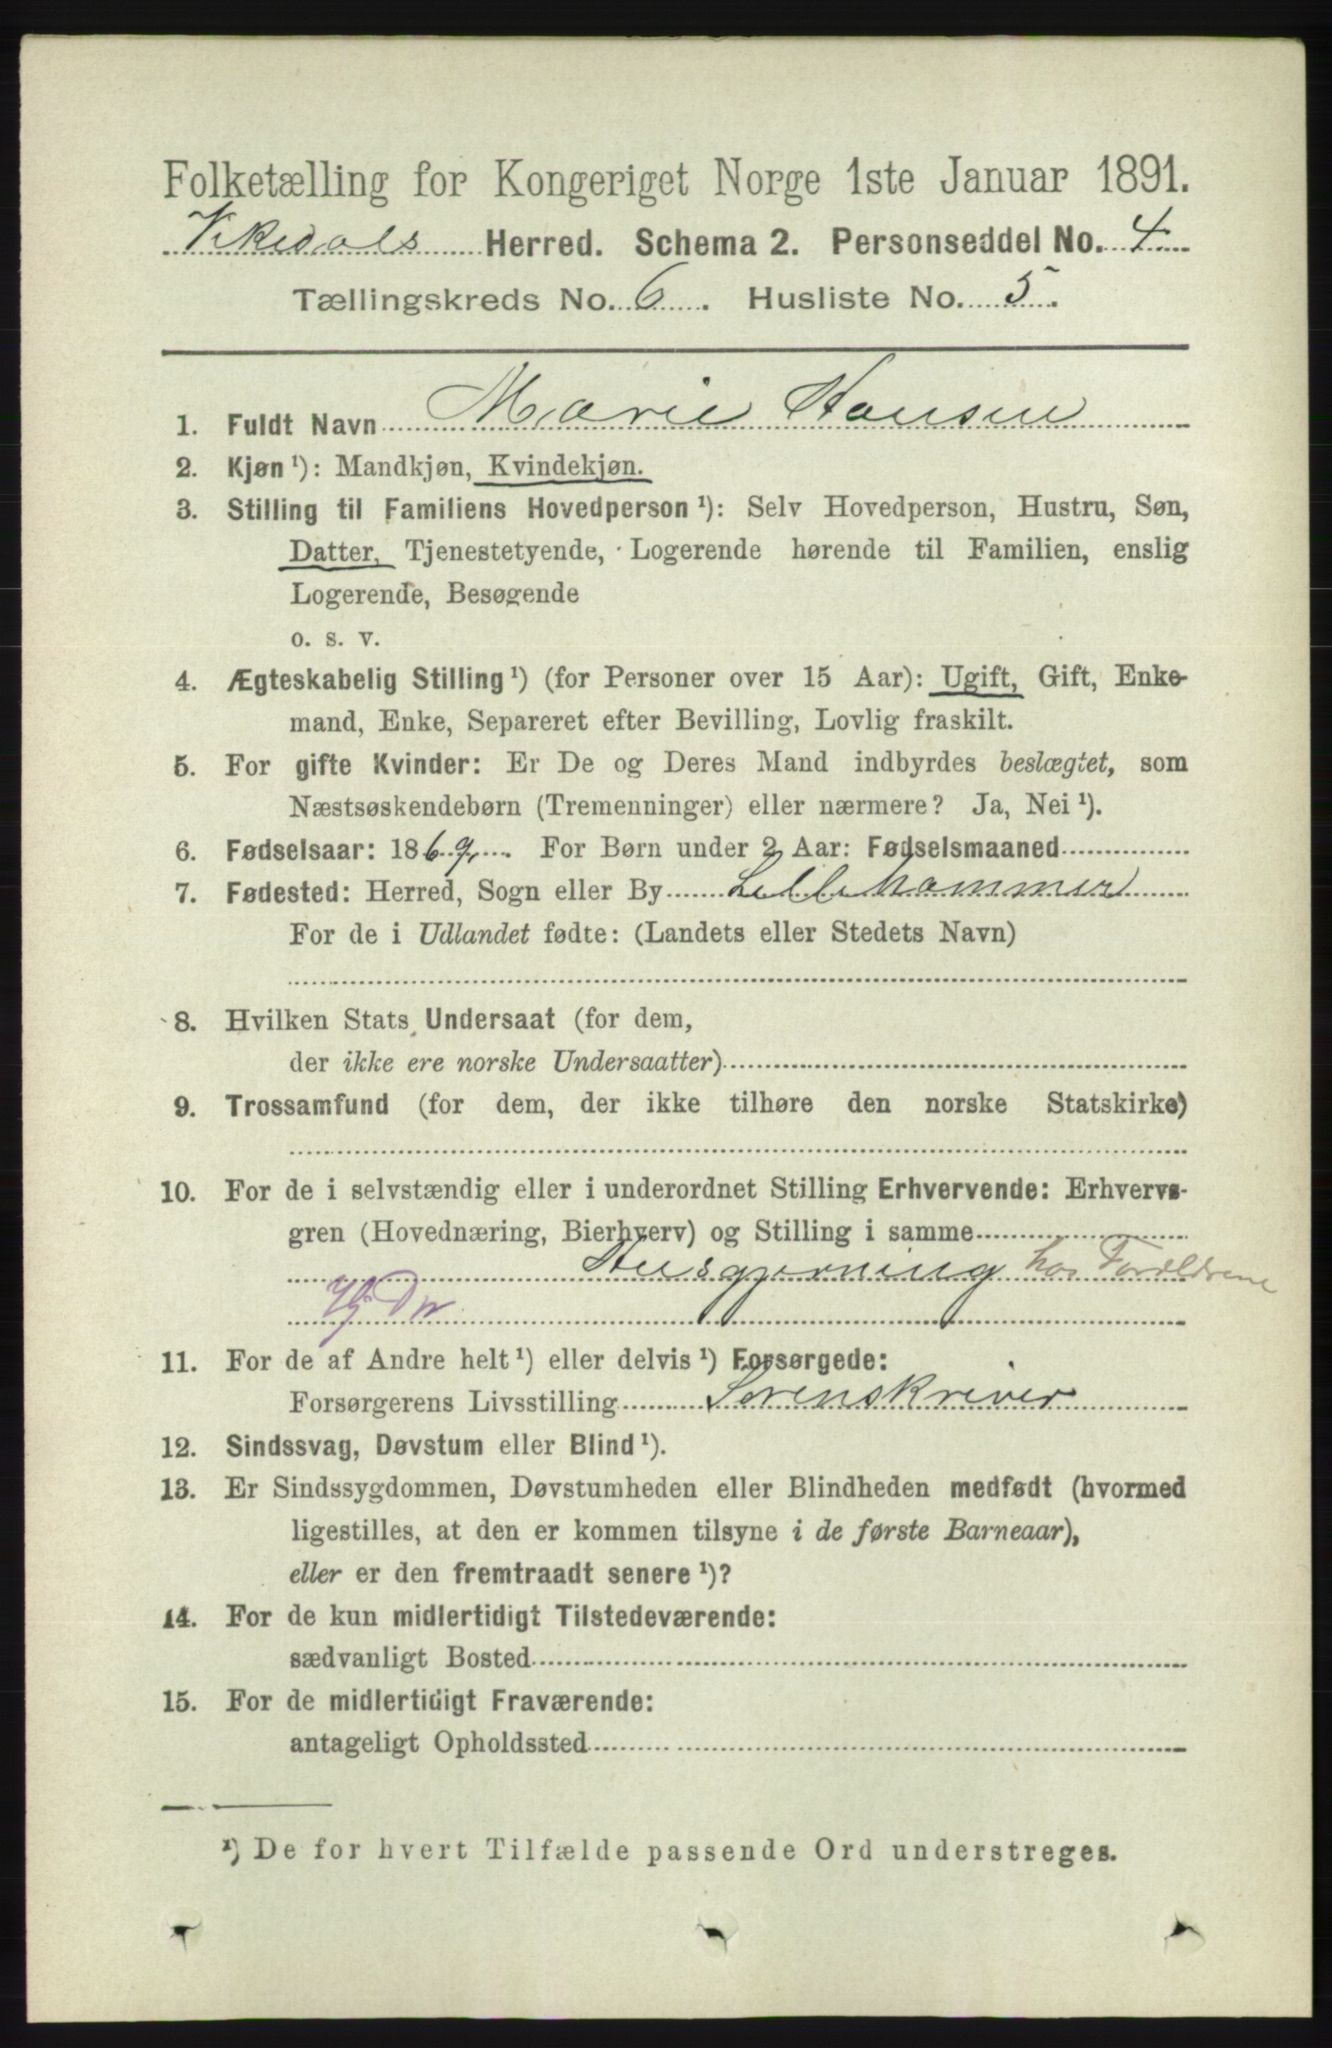 Folketælling for Kongeriget Norge 1ste Januar 1891.
Vikedals Herred. Schema 2. Personseddel No. 4
Tællingskreds No. 6. Husliste No. 5.
1. Fuldt Navn Marie Hansen
2. Kjøn¹): Mandkjøn, Kvindekjøn.
3. Stilling til Familiens Hovedperson¹): Selv Hovedperson, Hustru, Søn,
Datter, Tjenestetyende, Logerende hørende til Familien, enslig
Logerende, Besøgende
o. s. v.
4. Ægteskabelig Stilling¹) (for Personer over 15 Aar): Ugift, Gift, Enke-
mand, Enke, Separeret efter Bevilling, Lovlig fraskilt.
5. For gifte Kvinder: Er De og Deres Mand indbyrdes beslægtet, som
Næstsøskendebørn (Tremenninger) eller nærmere? Ja, Nei¹).
6. Fødselsaar: 1869. For Børn under 2 Aar: Fødselsmaaned
7. Fødested: Herred, Sogn eller By Lillehammer
For de i Udlandet fødte: (Landets eller Stedets Navn)
8. Hvilken Stats Undersaat (for dem,
der ikke ere norske Undersaatter)
9. Trossamfund (for dem, der ikke tilhøre den norske Statskirke)
10. For de i selvstændig eller i underordnet Stilling Erhvervende: Erhvervs-
gren (Hovednæring, Bierhverv) og Stilling i samme
Husgjerning hos Forældrene
Hg Dr
11. For de af Andre helt¹) eller delvis¹) Forsørgede:
Forsørgerens Livsstilling Sorenskriver
12. Sindssvag, Døvstum eller Blind¹).
13. Er Sindssygdommen, Døvstumheden eller Blindheden medfødt (hvormed
ligestilles, at den er kommen tilsyne i de første Barneaar),
eller er den fremtraadt senere¹)?
14. For de kun midlertidigt Tilstedeværende:
sædvanligt Bosted
15. For de midlertidigt Fraværende:
antageligt Opholdssted
¹) De for hvert Tilfælde passende Ord understreges.